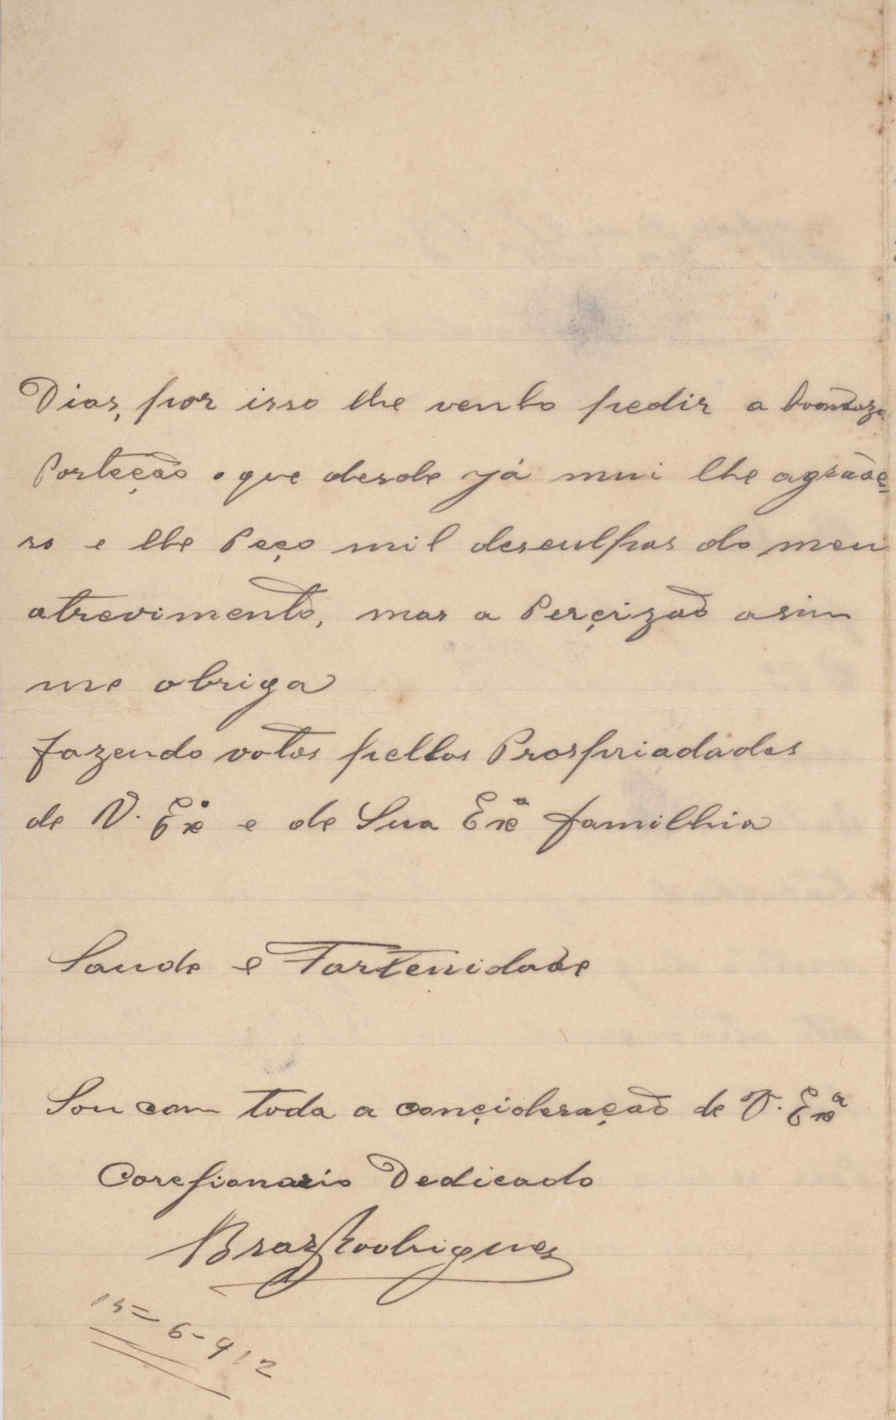 Dias, por isso lhe venho pedir a bvondoza
Porteção o que desde já mui lhe agrade=
so e lhe Peço mil desculpas do meu
atrevimento, mas a Perçizão asim
me obriga
fazendo votos pellas Prospriadades
de V. Exª e de Sua Exª familhia
Saude e Farternidade
Sou com toda a conçideração de V. Exª
Corefionario Dedicado
Braz Rodrigues
15=6-912